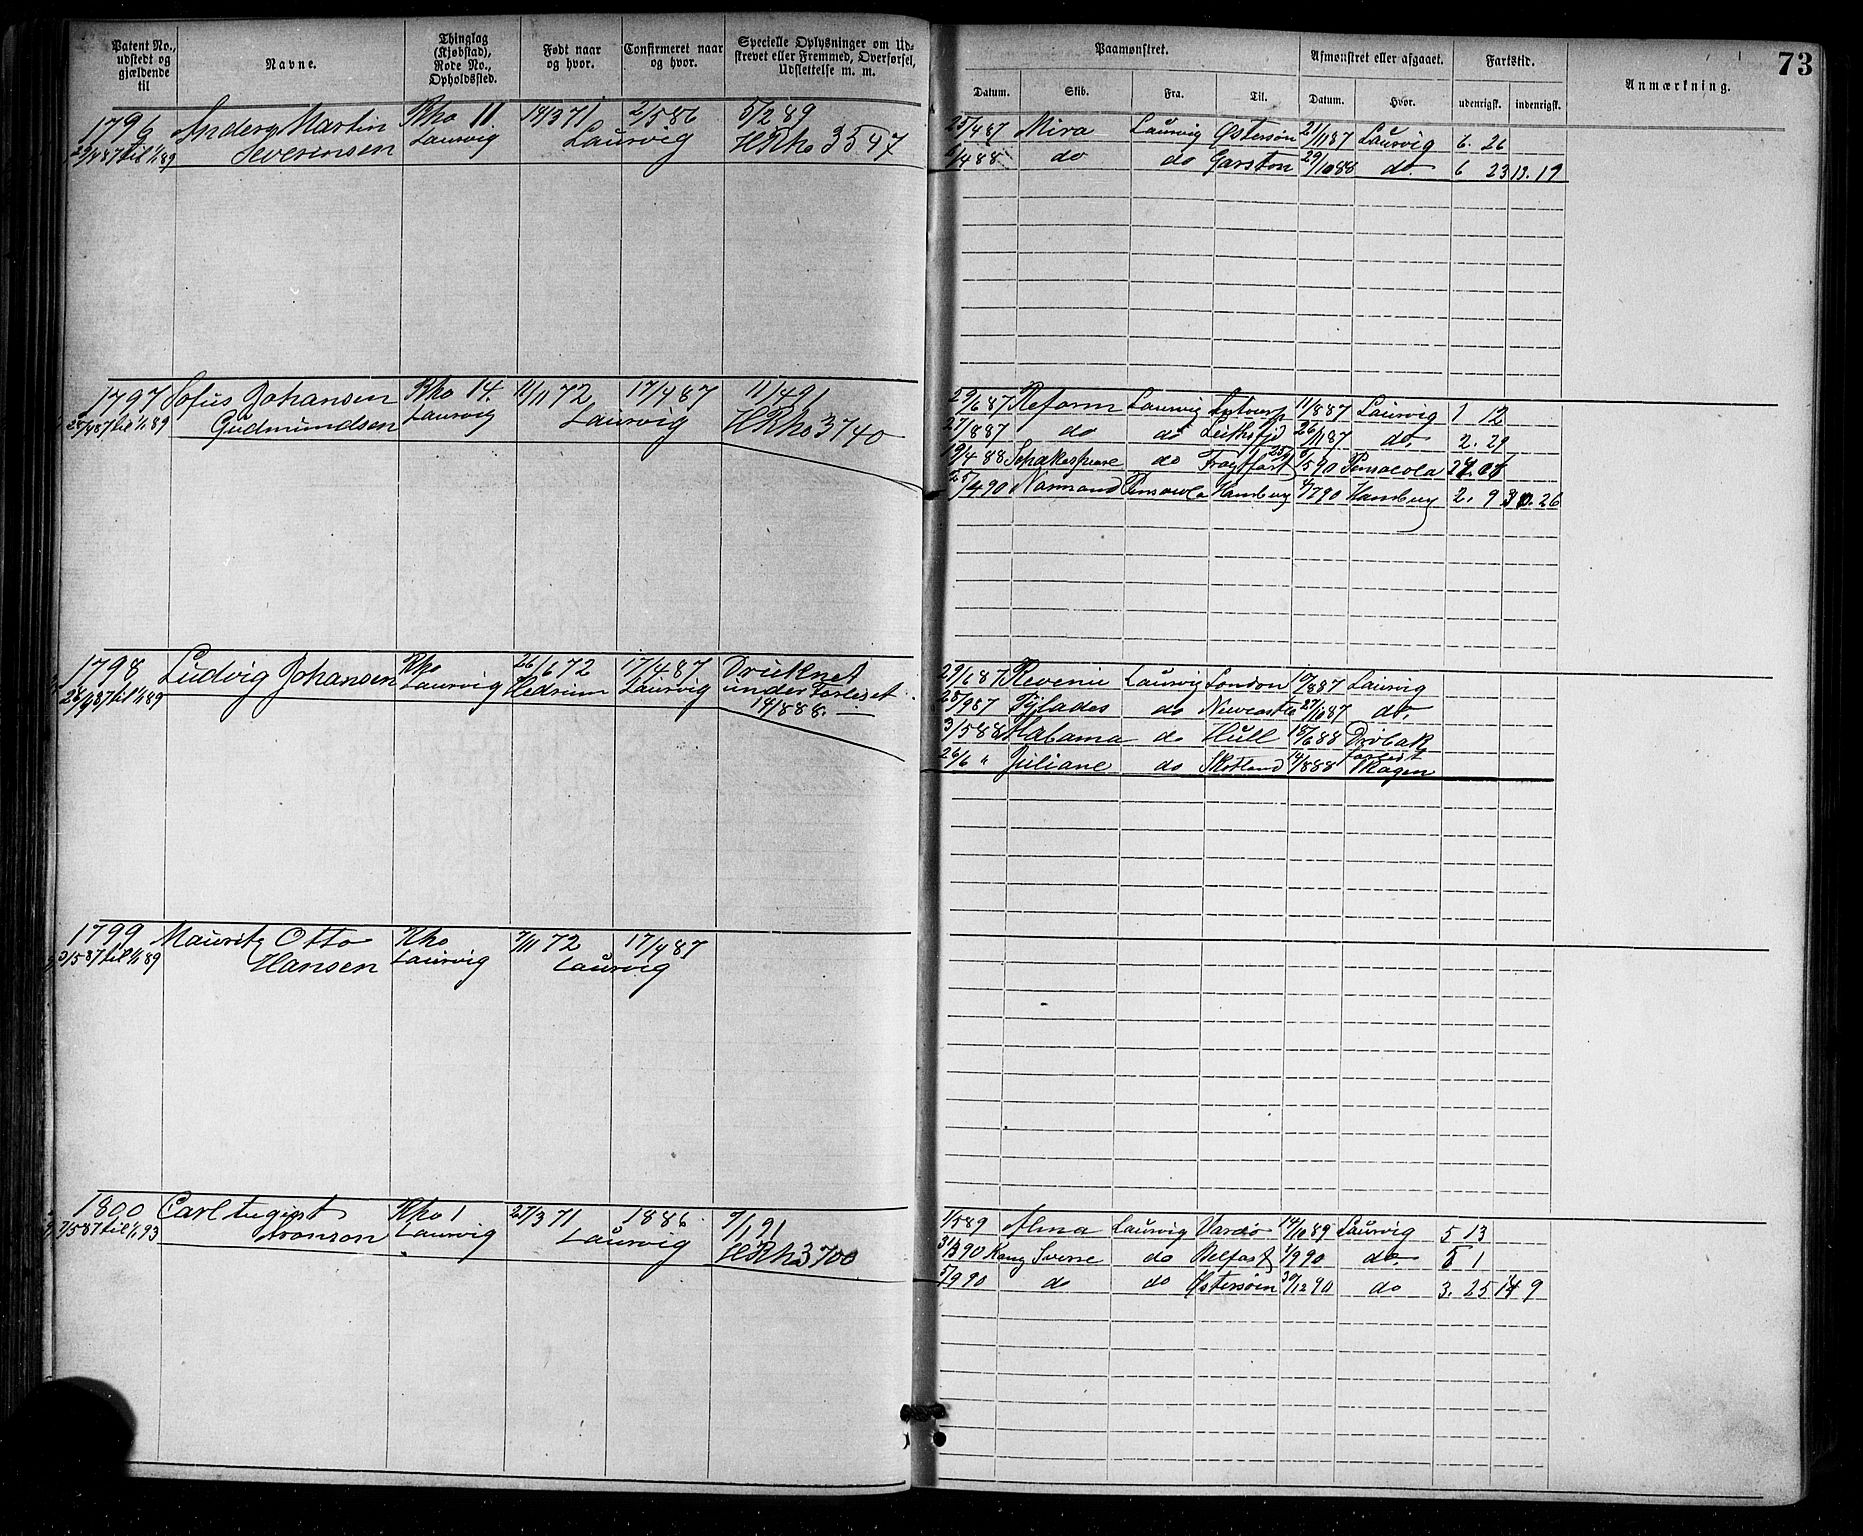 73
Patent No., udstedt og gjældende til
Navne.
Thinglag (Kjøbstad), Rode No., Opholdssted.
Født naar og hvor.
Confirmeret naar og hvor.
Specielle Oplysninger om Udskrevet eller Fremmed, Overførsel, Udslettelse m. m.
Paamønstret.
Afmønstret eller afgaaet.
Fartstid.
Anmærkning.
Datum. Skib. Fra. Til. Datum. Hvor. udenrigsk. indenrigsk.
1796 Anders Martin Rho 11 14/3 71 2/5 86 5/2 89
til 1/1 89 Severinsen Laurvig Laurvig HRho 3547
25/4 87 Mira Laurvig Østersøn 21/11 87 Laurvig 6. 26
/4 88 do do Garston 29/10 88 do. 6 23 13. 19
1797 Sofus Johansen Rho 14. 11/11 72 17/4 87 11/4 91
28/4 87 til 1/1 89 Gudmundsen Laurvig Laurvig HRho 3740
29/6 87 Reform Laurvig 11/8 87 Laurvig 1 12
27/8 87 do do 26/11 87 do. 2. 29
19/4 88 Schakespeare do Fragtfart /5 90 Pensacola
25/4 90 Normand Pensacola Hamburg 4/7 90 Hamburg 2. 9 26
1798 Ludvig Johansen Rho 26/6 72 17/4 87 Druknet
28/4 87 til 1/1 89 Laurvig Hedrum Laurvig under Forliset
14/8 88. —
29/6 87 Revenu Laurvig London 10/8 87 Laurvig
25/9 87 Pylades do Newcastle 27/10 87 do.
3/5 88 Alabama do Hull 15/6 88 Drøbak
26/6 " Juliane do Skotland 14/8 88 forlist Skagen
1799 Mauritz Otto Rho 7/11 72 17/4 87
2/5 87 til 1/1 89 Hansen Laurvig Laurvig
1800 Carl August Rho 1 27/3 71 1886 7/1 91
2/5 87 til 1/1 93 Aronson Laurvig Laurvig HRho 3700
1/5 89 Alma Laurvig Vardø 14/10 89 Laurvig 5 13
31/3 90 Kong Sverre do Belfast 1/9 90 do. 5 1
5/9 90 do do Østersøen 30/12 90 do 3. 25 14 9